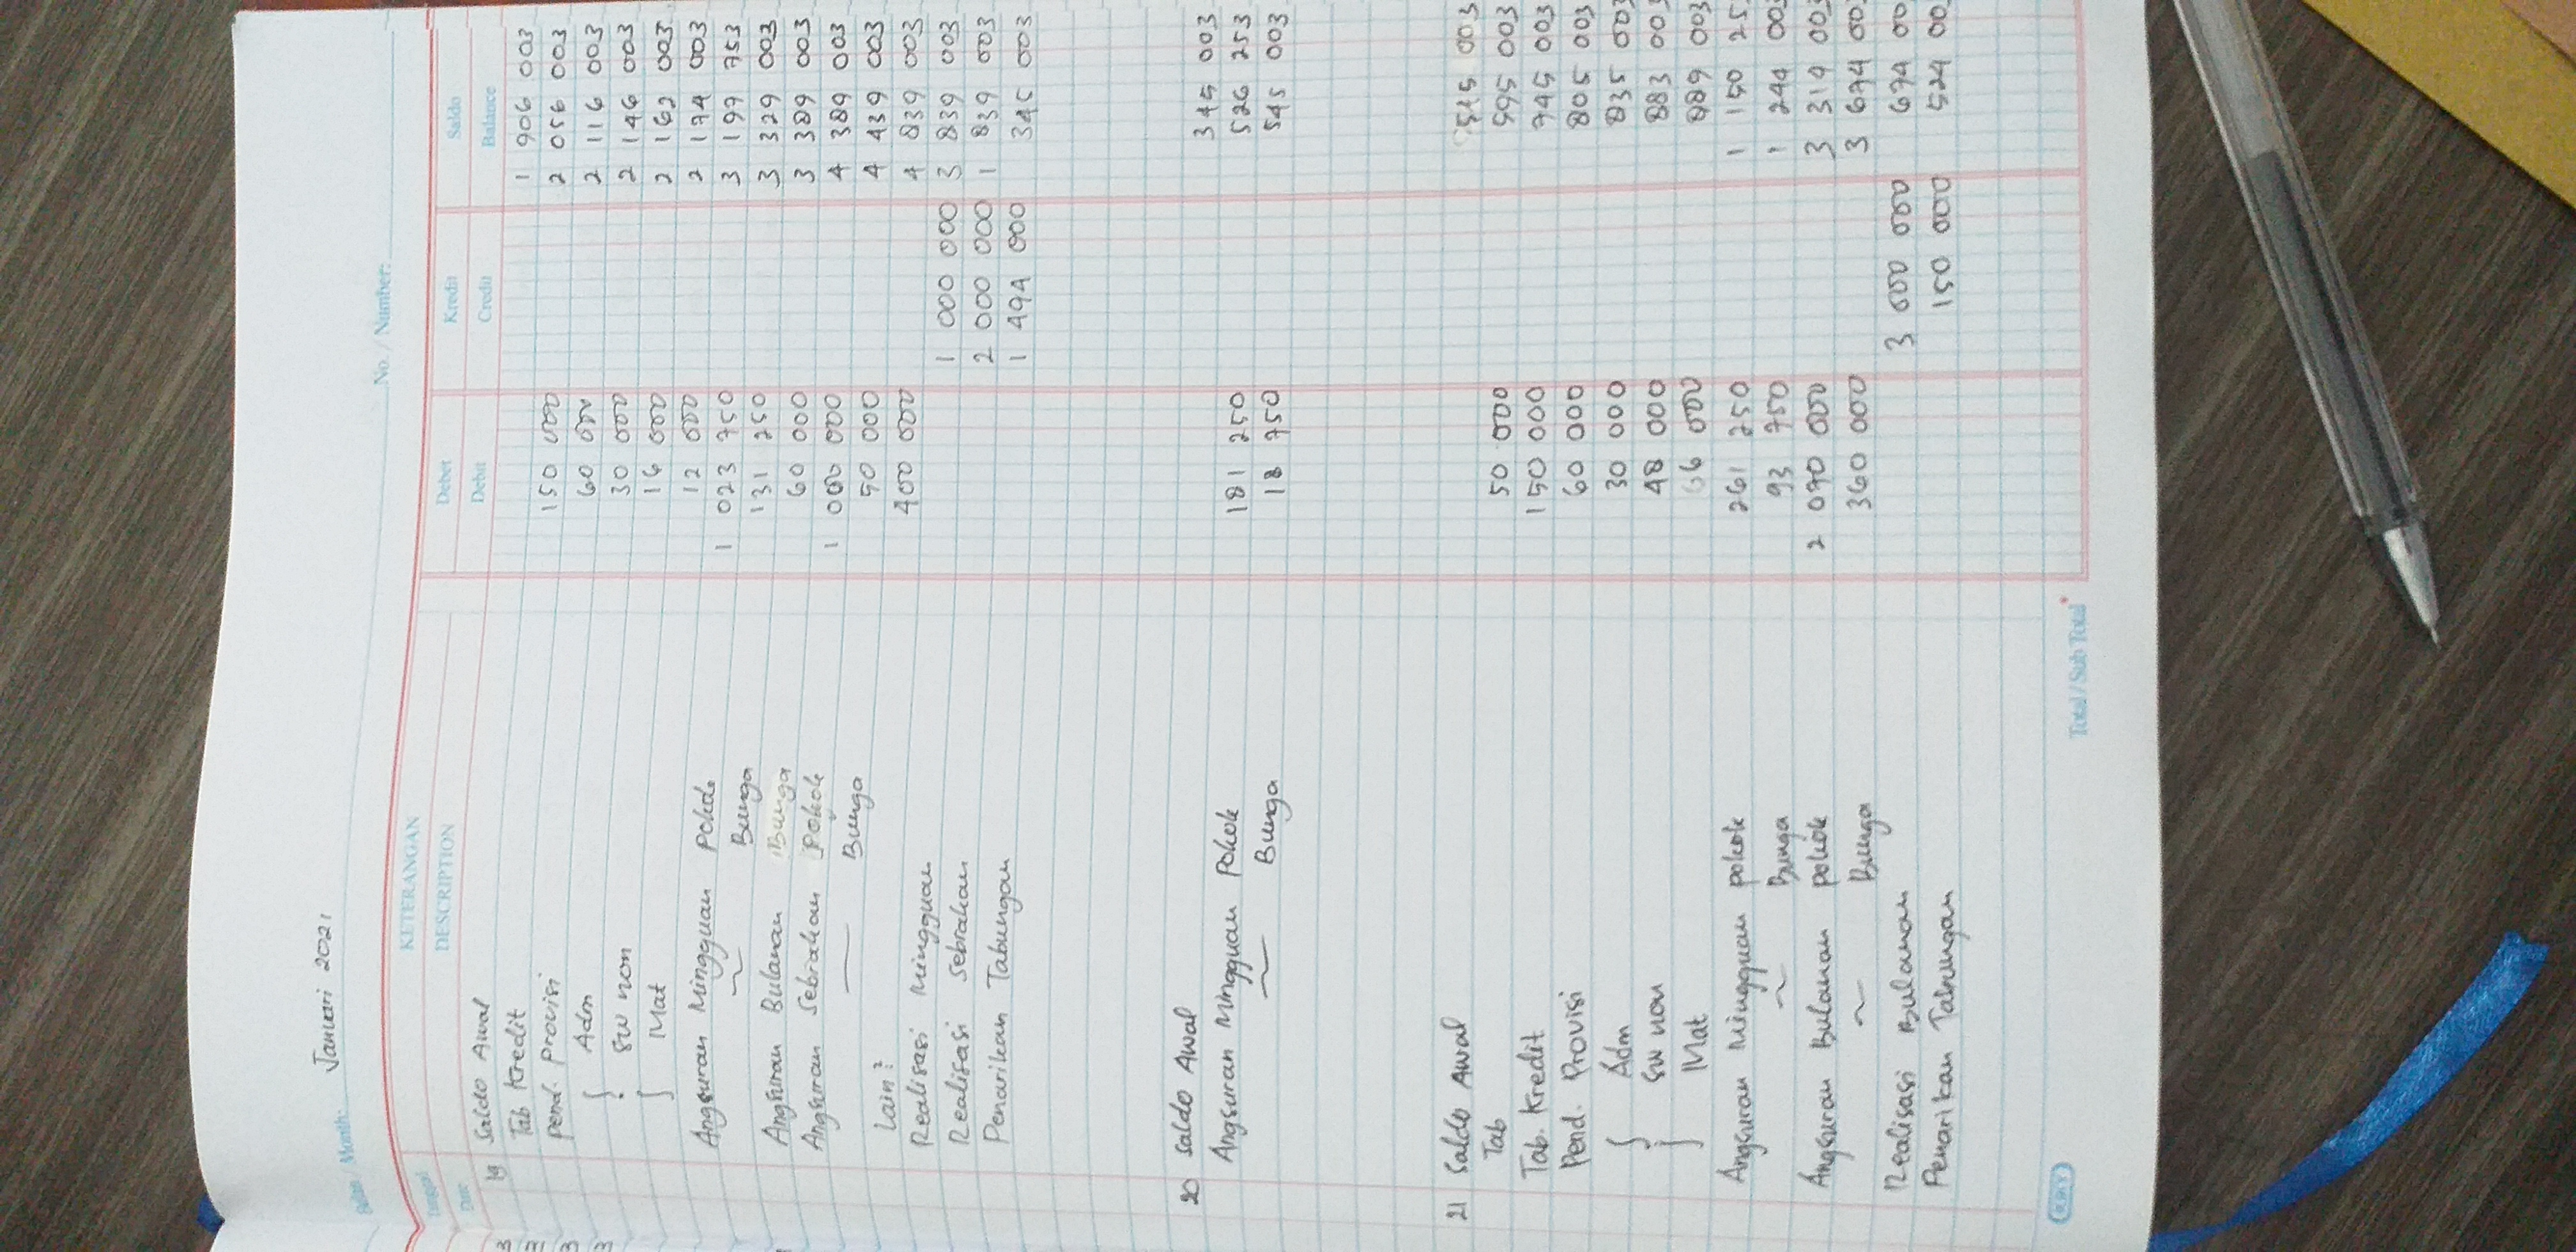 Januari 2021
Bulan / Month:
No. / Number:
Tanggal KETERANGAN Debet Kredit Saldo
Date DESCRIPTION Debit Credit Balance
19 Saldo Awal 1 906 003
Tab Kredit 150 000 2 056 003
Pend. Provisi 60 000 2 116 003
Adm 30 000 2 146 003
SW non 16 000 2 162 003
Mat 12 000 2 174 003
Angsuran Mingguan Pokok 1 023 750 3 197 753
~ Bunga 131 250 3 329 003
Angsuran Bulanan Bunga 60 000 3 389 003
Angsuran Sebrakan Pokok 1 000 000 4 389 003
— Bunga 50 000 4 439 003
Lain² 400 000 4 839 003
Realisasi Mingguan 1 000 000 3 839 003
Realisasi Sebrakan 2 000 000 1 839 003
Penarikan Tabungan 1 494 000 345 003
20 Saldo Awal 345 003
Angsuran Mingguan Pokok 181 250 526 253
~ Bunga 18 750 545 003
21 Saldo Awal 545 003
Tab 50 000 595 003
Tab. Kredit 150 000 745 003
Pend. Provisi 60 000 805 003
Adm 30 000 835 003
SW non 48 000 883 003
Mat 6 000 889 003
Angsuran Mingguan pokok 261 250 1 150 25
~ Bunga 93 750 1 244 003
Angsuran Bulanan pokok 2 070 000 3 314 003
~ Bunga 360 000 3 674 00
Realisasi Bulanan 3 000 000 674 00
Penarikan Tabungan 150 000 524 00
Total / Sub Total